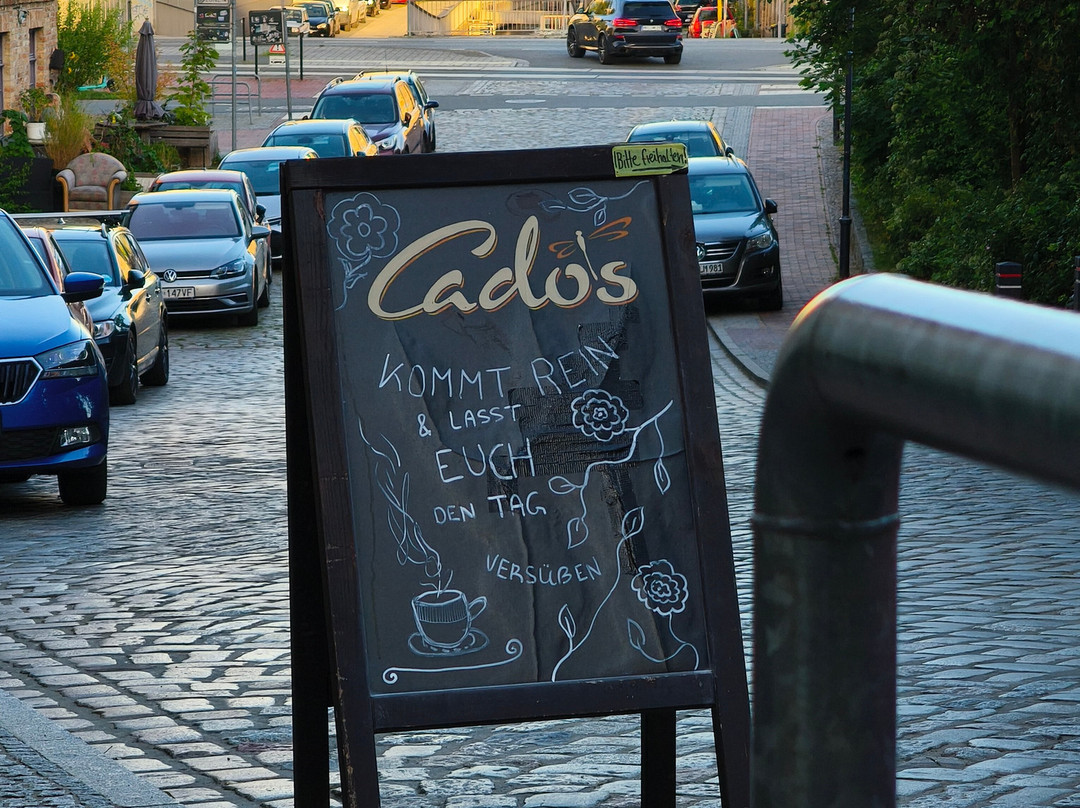 Bitte freihalten!
Cado's
KOMMT REIN
& LASST
EUCH
DEN TAG
VERSÜßEN
147VF
M 981